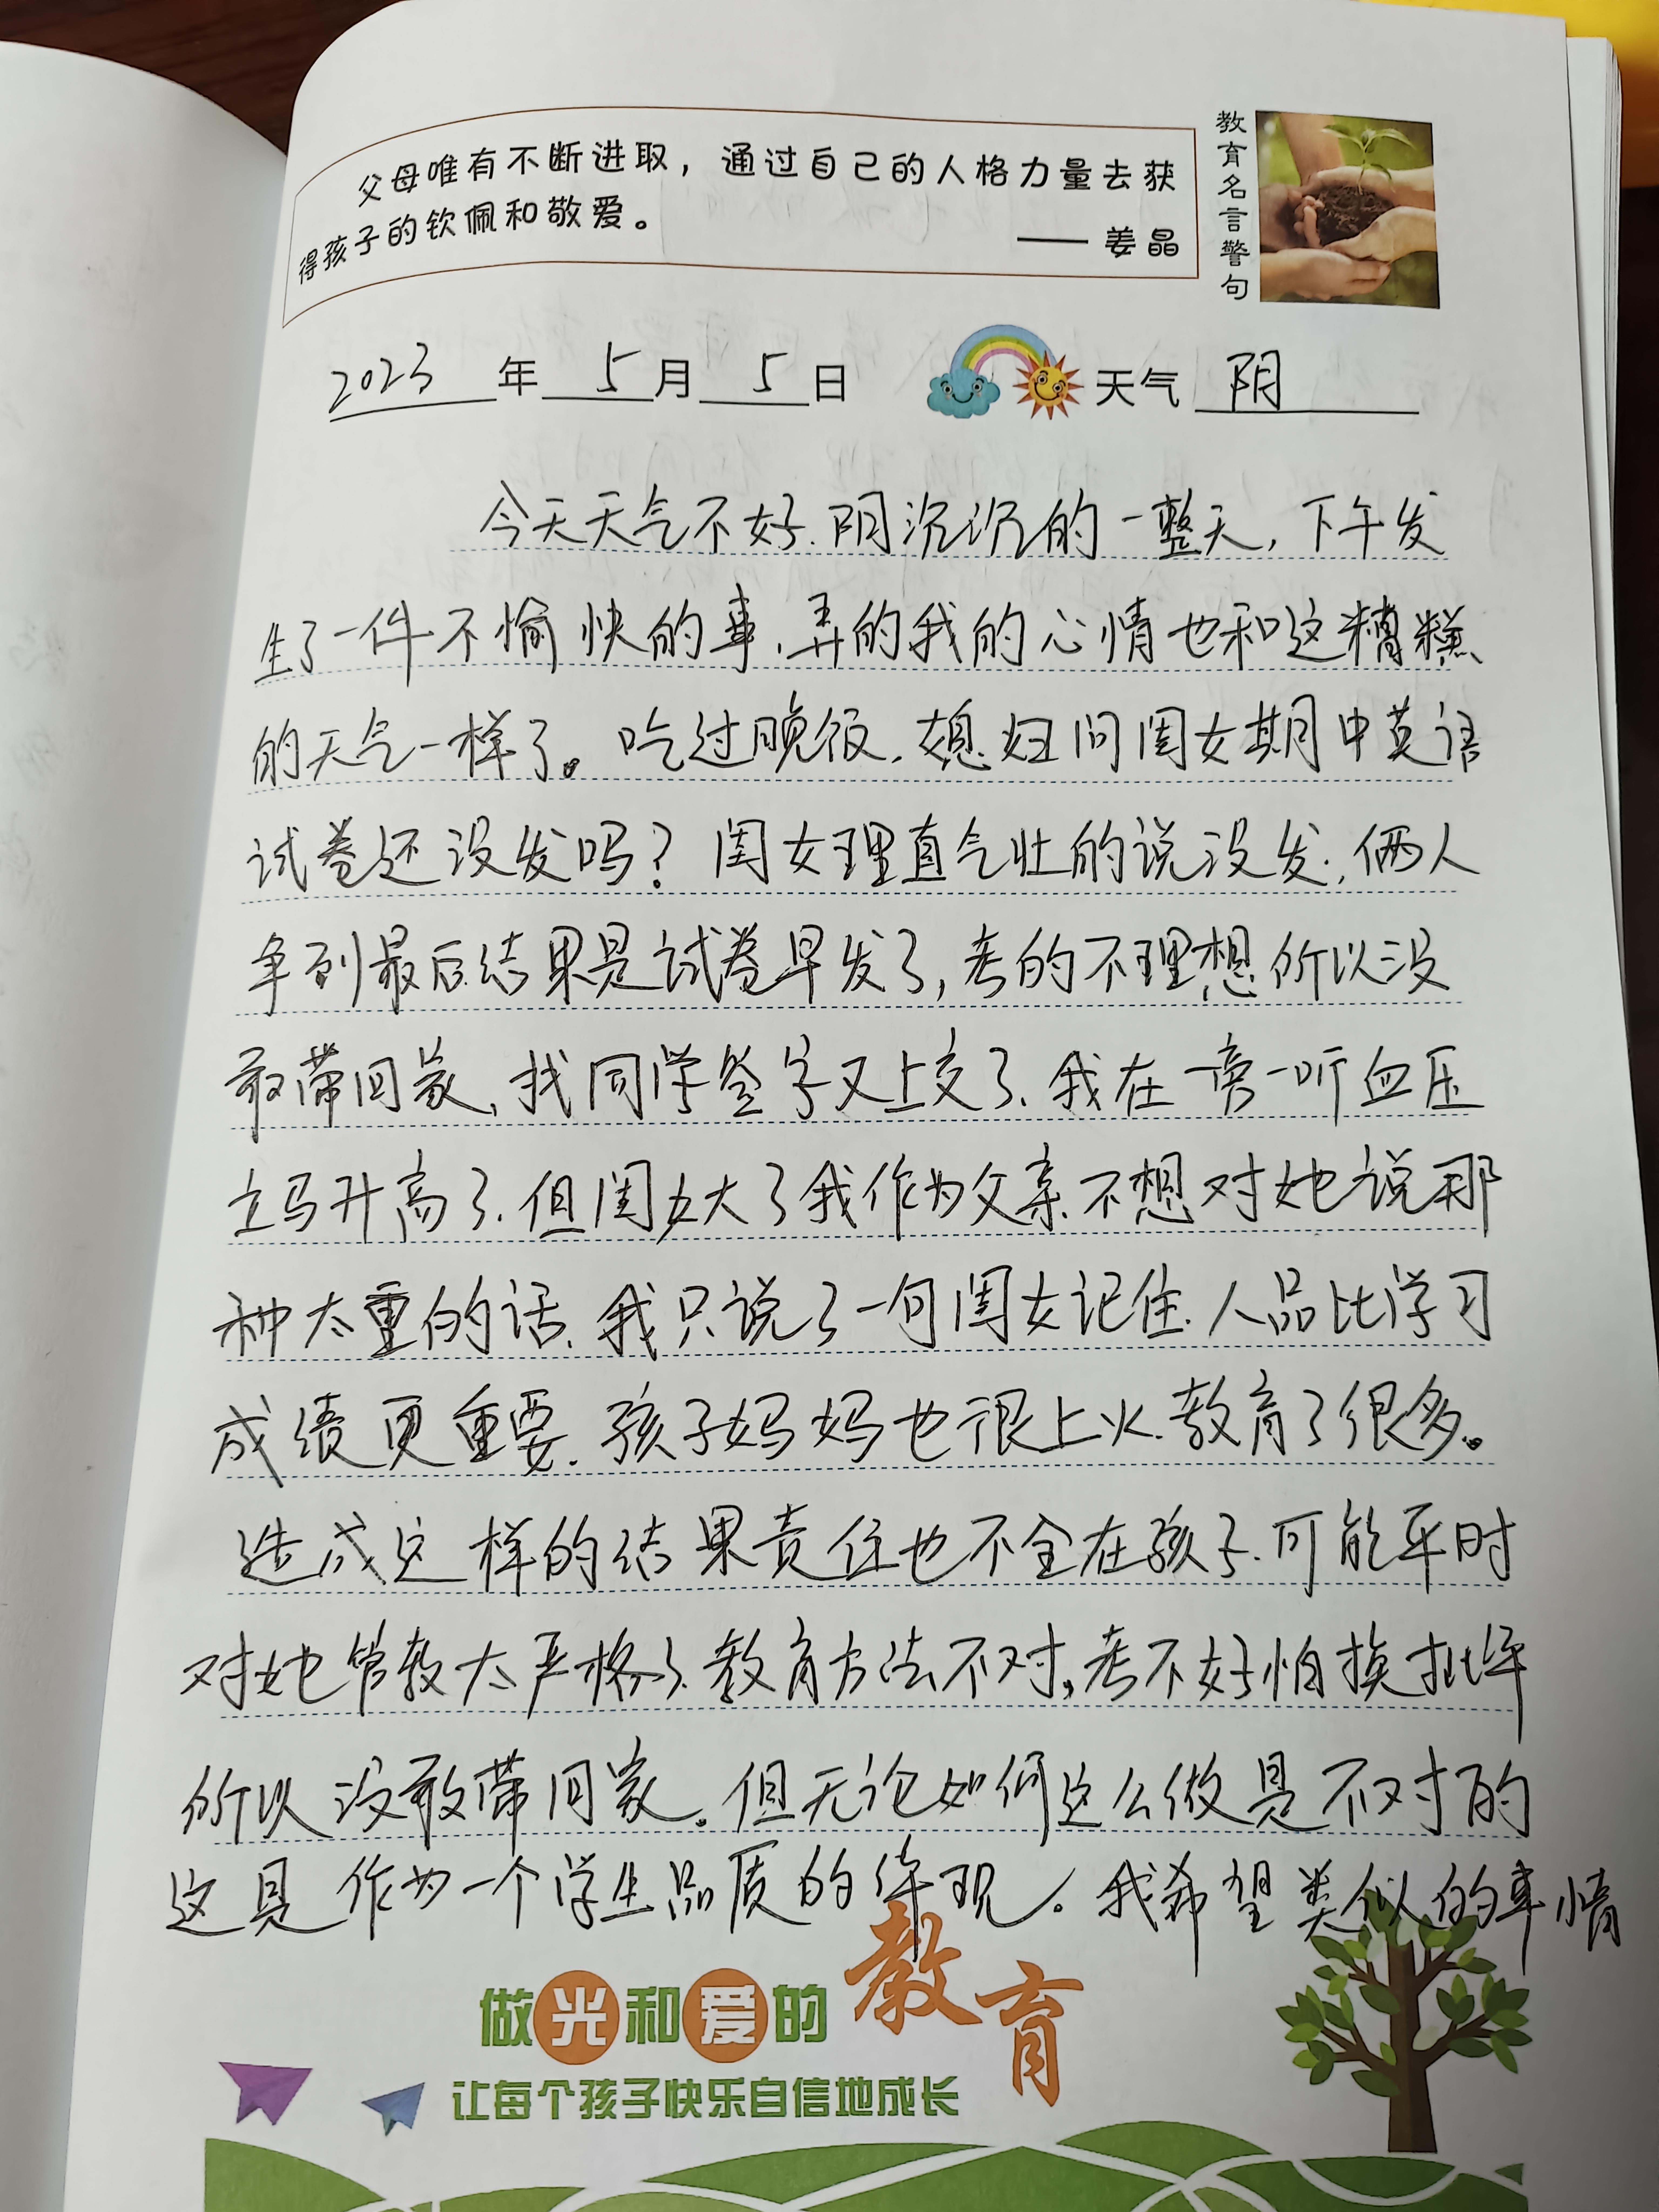 父母唯有不断进取，通过自己的人格力量去获
得孩子的钦佩和敬爱。
—— 姜晶
教育名言警句
2023 年 5 月 5 日 天气 阴
今天天气不好.阴沉沉的一整天，下午发
生了一件不愉快的事.弄的我的心情也和这糟糕
的天气一样了。吃过晚饭.媳妇问闺女期中英语
试卷还没发吗？闺女理直气壮的说没发.俩人
争到最后结果是试卷早发了，考的不理想所以没
敢带回家、找同学签字又上交了、我在一旁一听血压
立马升高了.但闺女大了我作为父亲不想对她说那
种太重的话、我只说了一句闺女记住.人品比学习
成绩更重要.孩子妈妈也很上火.教育了很多。
造成这样的结果责任也不全在孩子.可能平时
对她管教太严格了.教育方法不对，考不好怕挨批评
所以没敢带回家。但无论如何这么做是不对的
这是作为一个学生品质的体现。我希望类似的事情
做光和爱的教育
让每个孩子快乐自信地成长